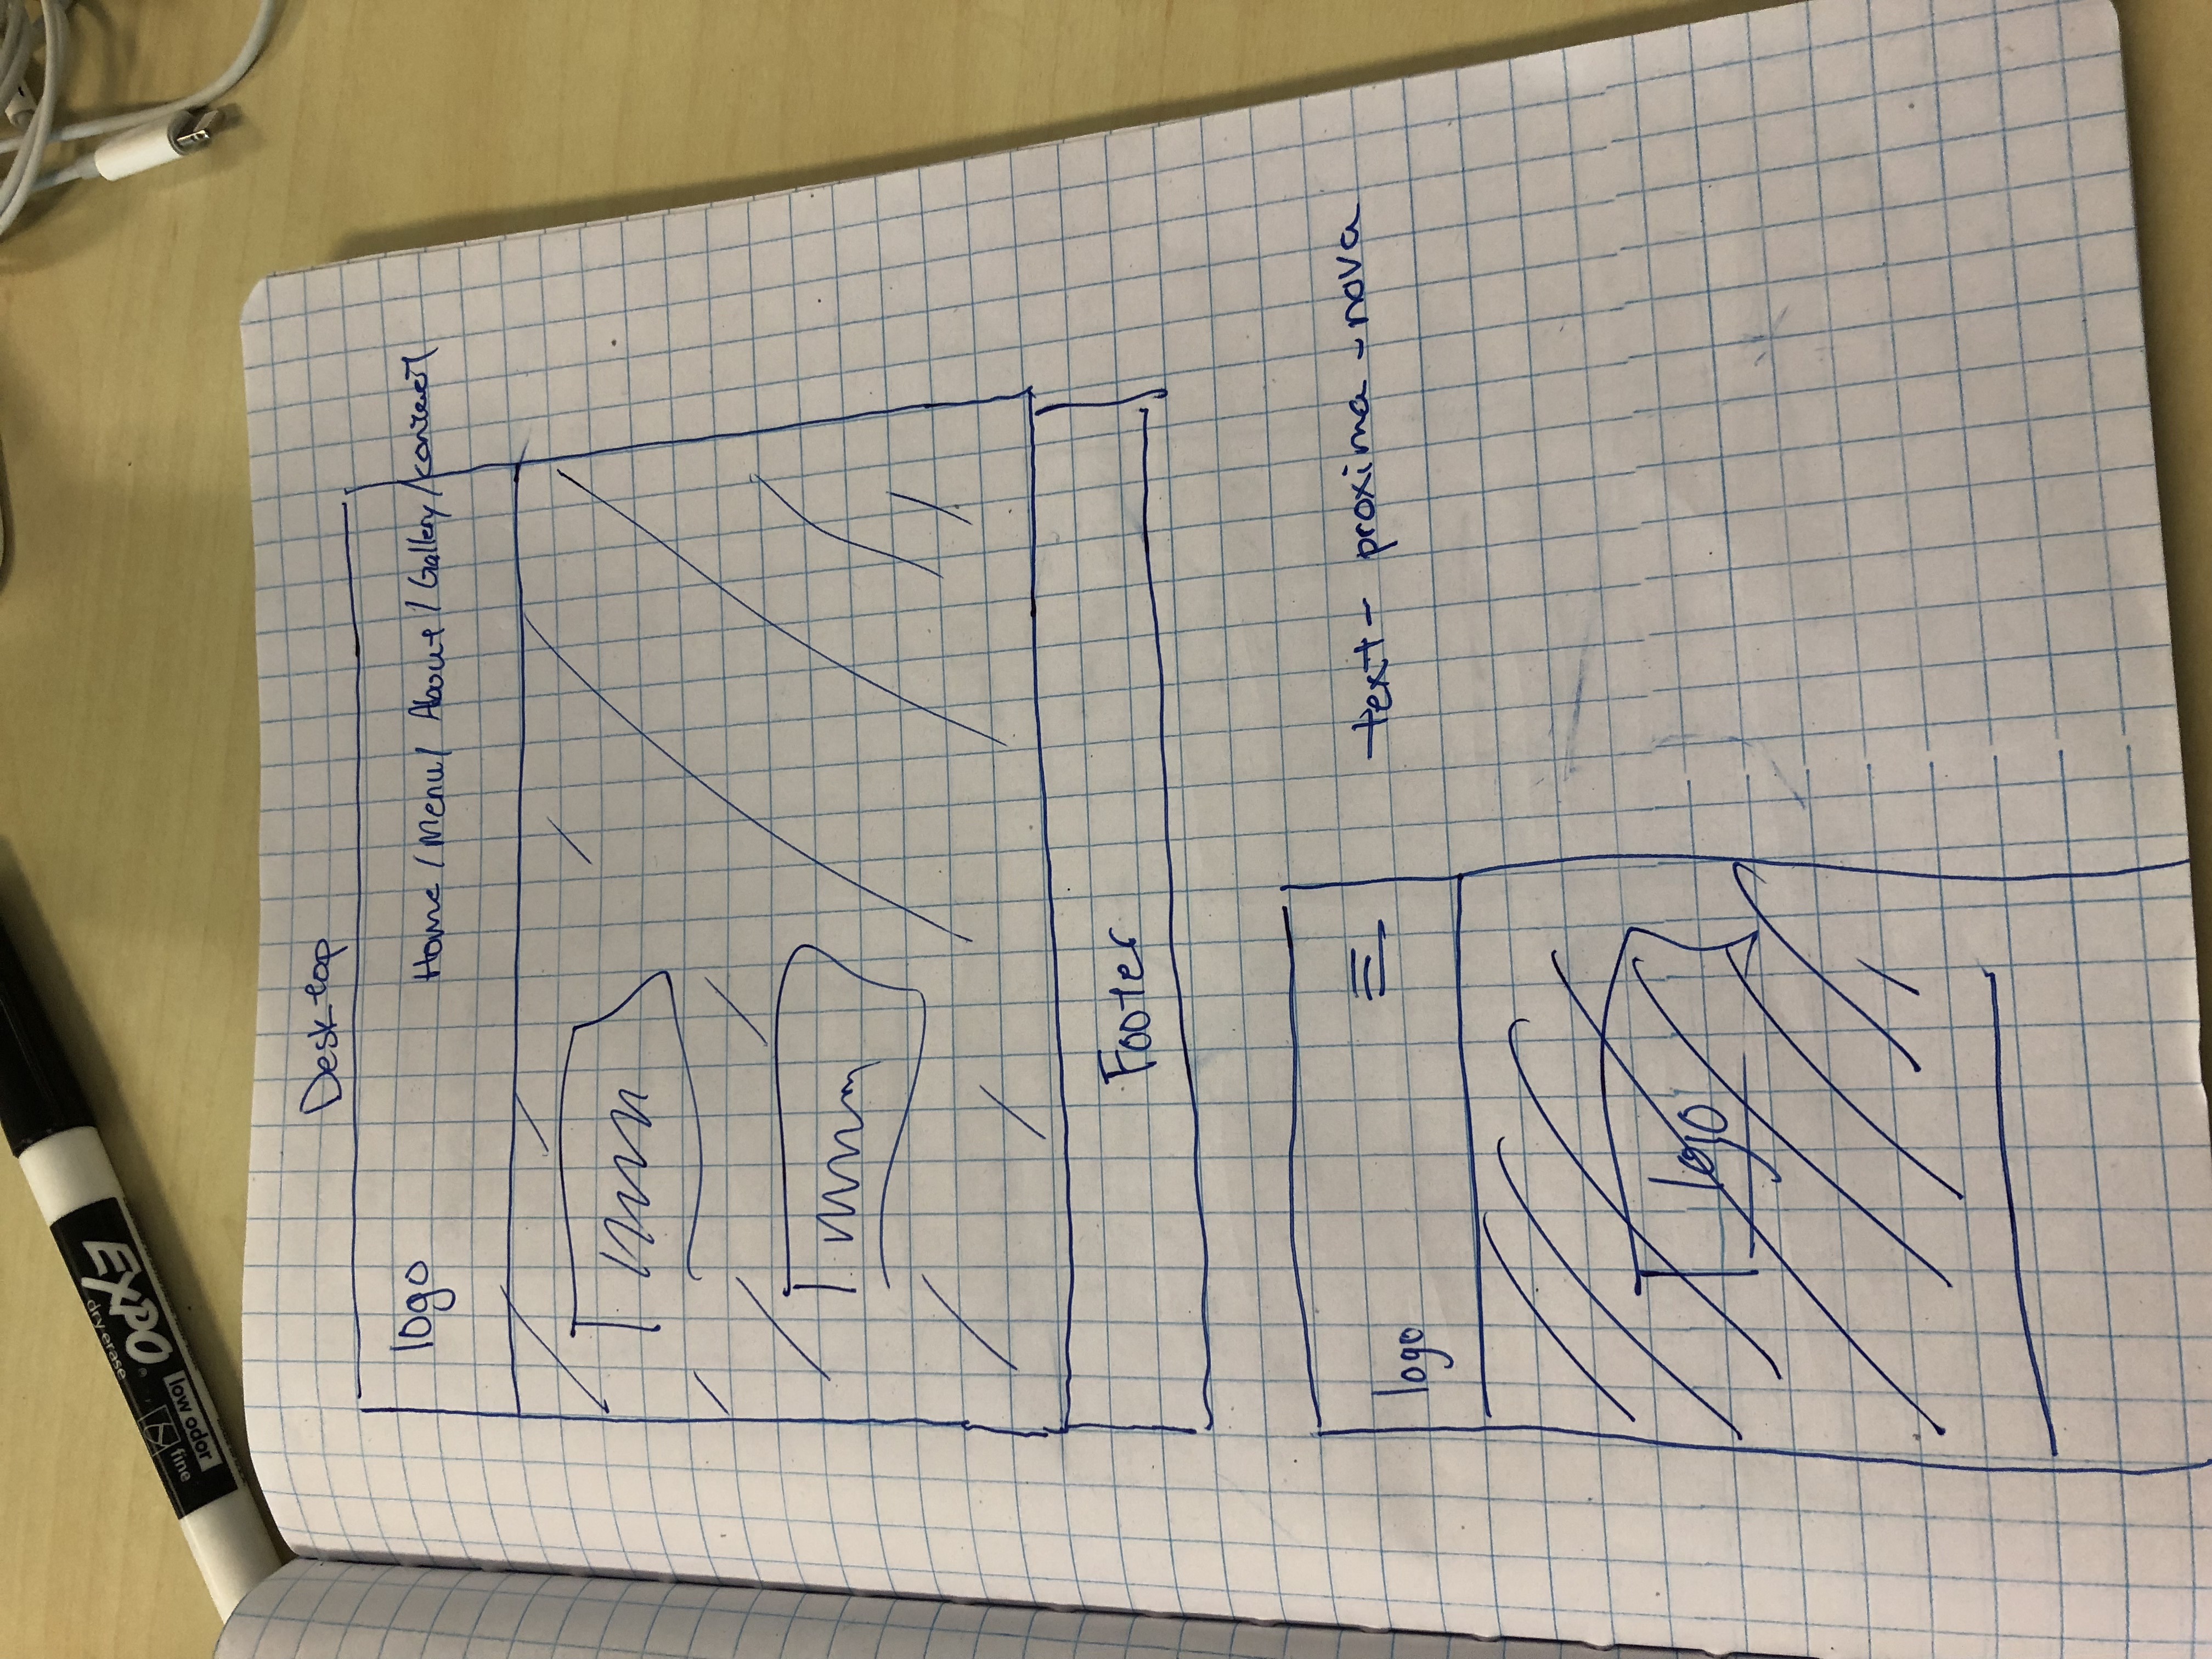 EXPO
dry erase
low odor
fine
Desktop
logo
Home / Menu / About / Gallery / contact
Footer
logo
text - proxima - nova
logo